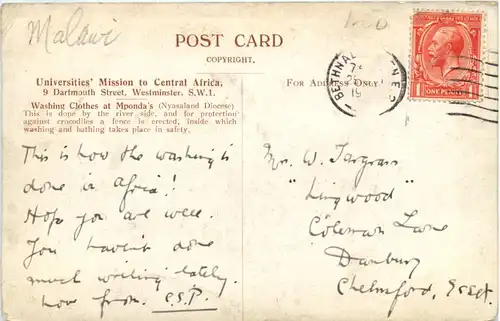 Malawi
POST CARD
COPYRIGHT.
Universities' Mission to Central Africa,
9 Dartmouth Street, Westminster, S.W.1.
FOR ADDRESS ONLY.
Washing Clothes at Mponda's (Nyasaland Diocese)
This is done by the river side, and for protection
against crocodiles a fence is erected, inside which
washing and bathing takes place in safety.
This is how the washing is
done in Africa!
Hope you are well.
You haven't done
much writing lately.
love from. E.S.P.
Mrs. W.
"Lingwood"
Coleman Lane
Danbury
Chelmsford, Essex.
BETHNAL
ONE PENNY